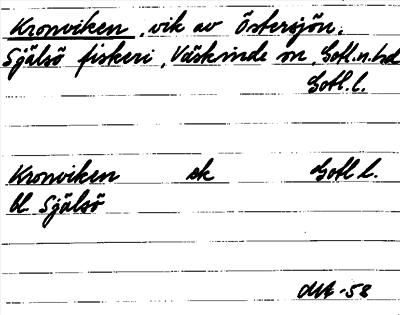 Kronviken, vik av Östersjön,
Själsö fiskeri, Väskinde sn, Gotl.n.hd
Gotl.l.
Kronviken ek Gotl l.
bl Själsö
-58